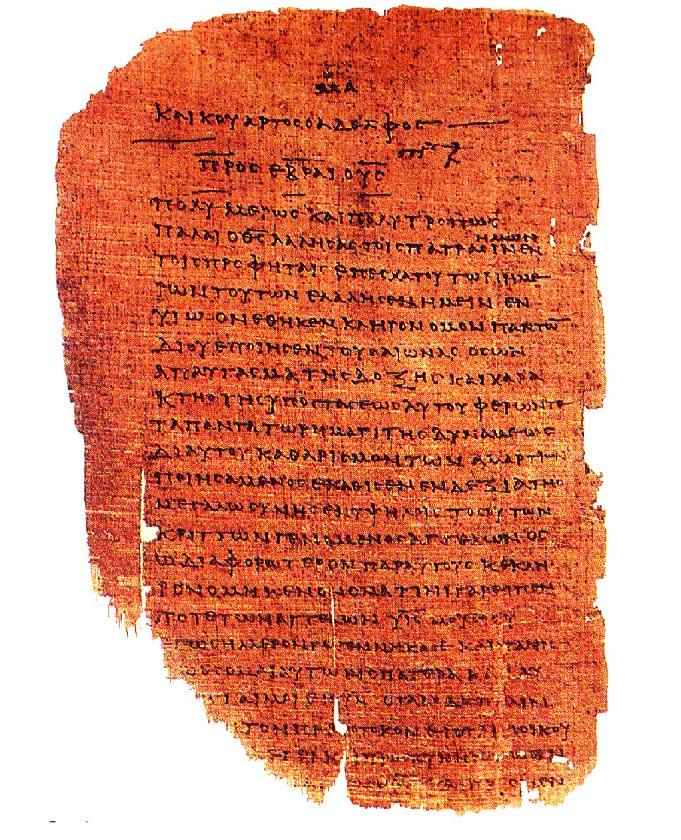 ΜΑ
ΚΑΙ ΚΟΥΑΡΤΟϹ Ο ΑΔΕΛΦΟϹ
ΠΡΟϹ ΕΒΡΑΙΟΥϹ
ΠΟΛΥΜΕΡΩϹ ΚΑΙ ΠΟΛΥΤΡΟΠΩϹ
ΗΜΩΝ
ΠΑΛΑΙ Ο ΘϹ ΛΑΛΗϹΑϹ ΤΟΙϹ ΠΑΤΡΑϹΙΝ ΕΝ
ΤΟΙϹ ΠΡΟΦΗΤΑΙϹ ΕΠ ΕϹΧΑΤΟΥ ΤΩΝ ΗΜΕ
ΡΩΝ ΤΟΥΤΩΝ ΕΛΑΛΗϹΕΝ ΗΜΕΙΝ ΕΝ
ΥΙΩ ΟΝ ΕΘΗΚΕΝ ΚΛΗΡΟΝΟΜΟΝ ΠΑΝΤΩ
ΔΙ ΟΥ ΕΠΟΙΗϹΕΝ ΤΟΥϹ ΑΙΩΝΑϹ ΟϹ ΩΝ
ΑΠΑΥΓΑϹΜΑ ΤΗϹ ΔΟΞΗϹ ΚΑΙ ΧΑΡΑ
ΚΤΗΡ ΤΗϹ ΥΠΟϹΤΑϹΕΩϹ ΑΥΤΟΥ ΦΕΡΩΝ ΤΕ
ΤΑ ΠΑΝΤΑ ΤΩ ΡΗΜΑΤΙ ΤΗϹ ΔΥΝΑΜΕΩϹ
ΔΙ ΑΥΤΟΥ ΚΑΘΑΡΙϹΜΟΝ ΤΩΝ ΑΜΑΡΤΙΩΝ
ΠΟΙΗϹΑΜΕΝΟϹ ΕΚΑΘΙϹΕΝ ΕΝ ΔΕΞΙΑ ΤΗϹ
ΜΕΓΑΛΩϹΥΝΗϹ ΕΝ ΥΨΗΛΟΙϹ ΤΟϹΟΥΤΩΝ
ΚΡΙΤΤΩΝ ΓΕΝΟΜΕΝΟϹ ΑΓΓΕΛΩΝ ΟϹ
Ω ΔΙΑΦΟΡΩΤΕΡΟΝ ΠΑΡ ΑΥΤΟΥϹ ΚΕΚΛΗ
ΡΟΝΟΜΗΚΕΝ ΟΝΟΜΑ ΤΙΝΙ ΓΑΡ ΕΙΠΕΝ
ΠΟΤΕ ΤΩΝ ΑΓΓΕΛΩΝ ΥΙϹ ΜΟΥ ΕΙ ϹΥ
ϹΗΜΕΡΟΝ ΓΕΓΕΝΝΗΚΑ ϹΕ ΚΑΙ ΠΑΛΙΝ
ΑΥΤΩ ΕΙϹ ΠΑΤΕΡΑ ΚΑΙ ΑΥ